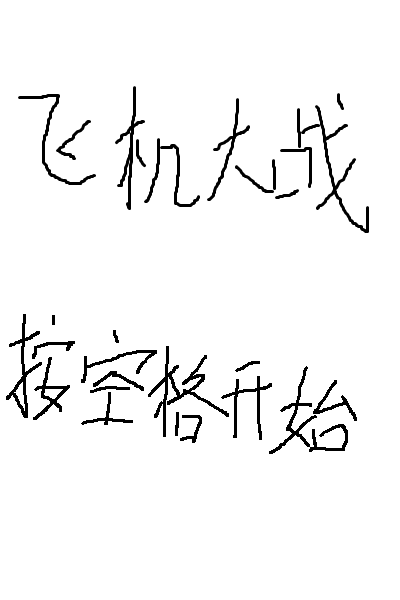 飞机大战
按空格开始